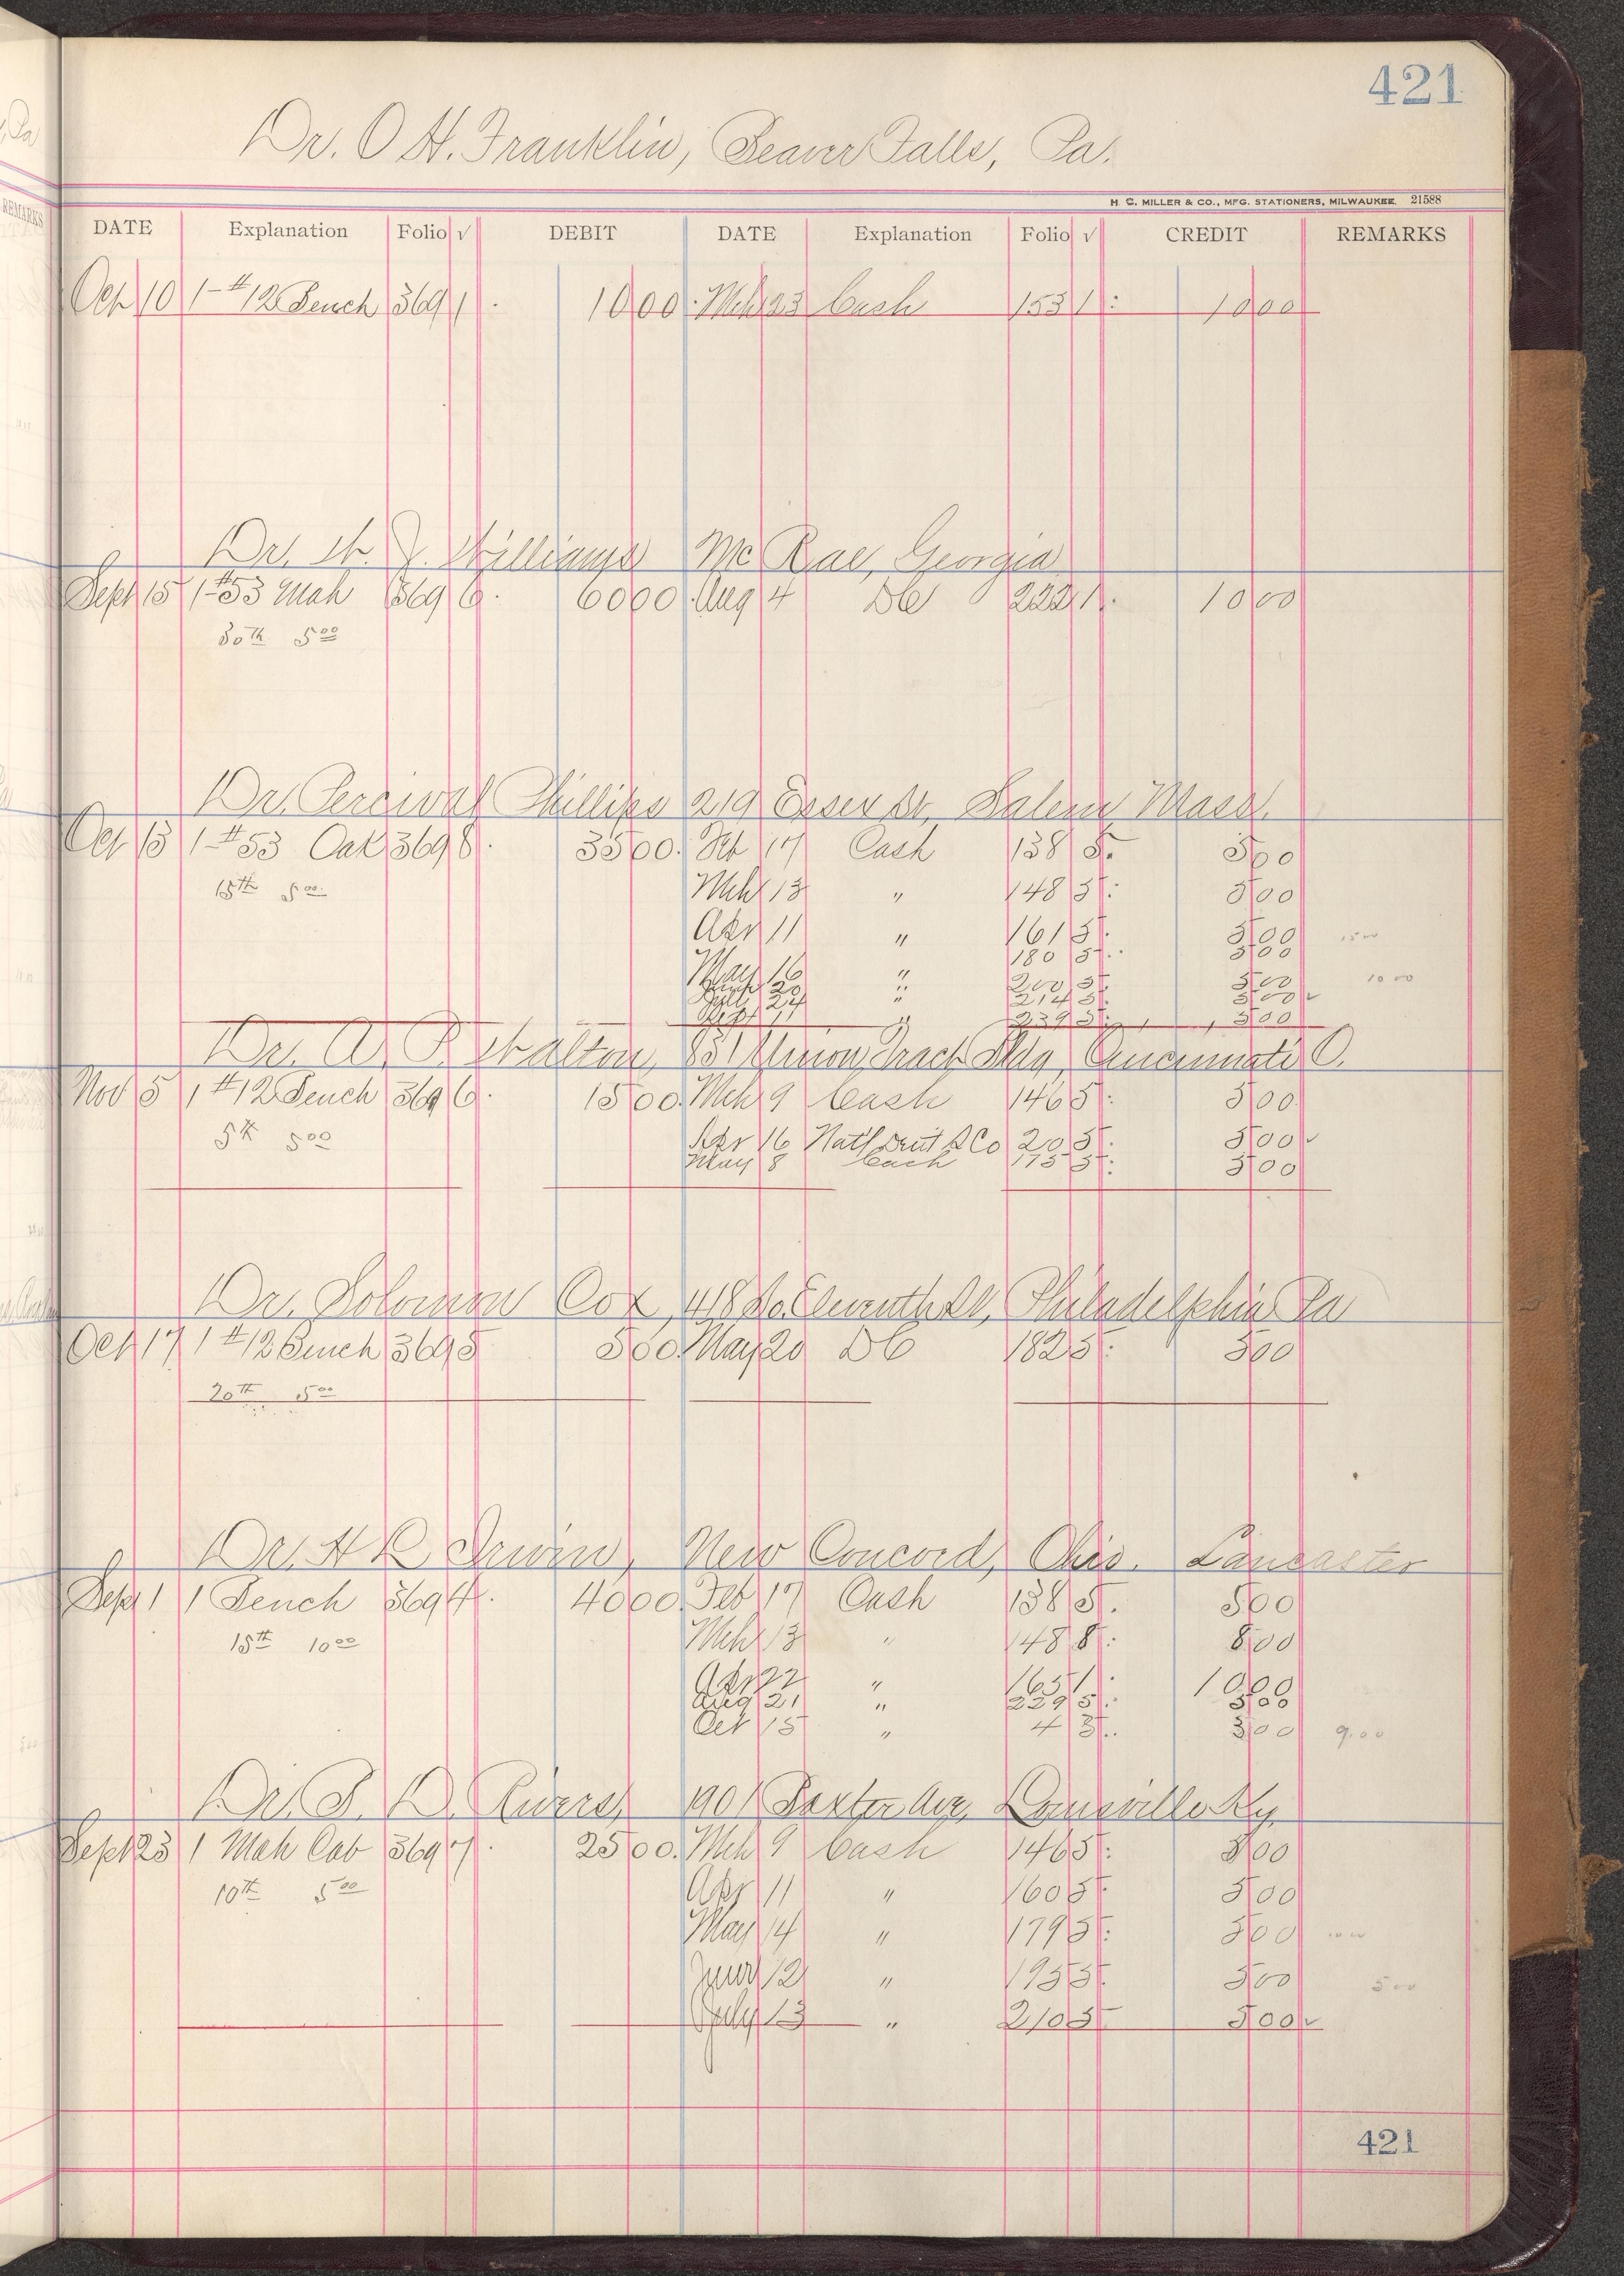 421
Dr. O H. Franklin, Beaver Falls, Pa.
H. C. MILLER & CO., MFG. STATIONERS, MILWAUKEE. 21588
DATE Explanation Folio √ DEBIT DATE Explanation Folio √ CREDIT REMARKS
Oct 10 1-#12 Bench 369 1 10 00 Mch 23 Cash 153 1 10 00
Dr. H. J. Williams Mc Rae, Georgia
Sept 15 1-#53 Mah 369 6 60 00 Aug 4 DC 222 1 10 00
30th 5 00
Dr. Percival Phillips 219 Essex St, Salem, Mass.
Oct 13 1-#53 Oak 369 8 35 00 Feb 17 Cash 138 5 5 00
15th 5 00
Mch 13 " 148 5 5 00
Apr 11 " 161 5 5 00 15 00
180 5 5 00
May 16 " 200 5 5 00 10 00
July 24 " 214 5 5 00
Sept 17 " 239 5 5 00
Dr. A. P. Walton, 851 Union Tract Bldg, Cincinnati O.
Nov 5 1 #12 Bench 369 6 15 00 Mch 9 Cash 146 5 5 00
5th 5 00
Apr 16 Natl Dent S Co 20 5 5 00
May 8 Cash 175 5 5 00
Dr. Solomon Cox, 418 So. Eleventh St, Philadelphia Pa
Oct 17 1 #12 Bench 369 5 5 00 May 20 DC 182 5 5 00
20th 5 00
Dr. H R Irwin, New Concord, Ohio. Lancaster
Sept 1 1 Bench 369 4 40 00 Feb 17 Cash 138 5 5 00
15th 10 00
Mch 13 " 148 8 8 00
Apr 22 " 165 1 10 00
Aug 21 " 229 5 5 00
Oct 15 " 4 3 3 00 9.00
Dr. S. D. Rivers, 1901 Baxter Ave, Louisville Ky,
Sept 23 1 Mah Cab 369 7 25 00 Mch 9 Cash 146 5 5 00
10th 5 00
Apr 11 " 160 5 5 00
May 14 " 179 5 5 00 10 00
June 12 " 195 5 5 00 5 00
July 13 " 210 5 5 00
421